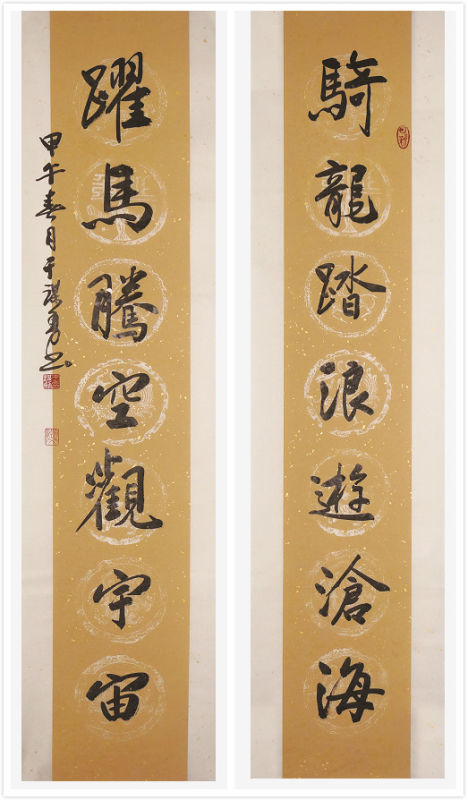 騎龍踏浪遊滄海
躍馬騰空觀宇宙
甲午春月于祥勇书